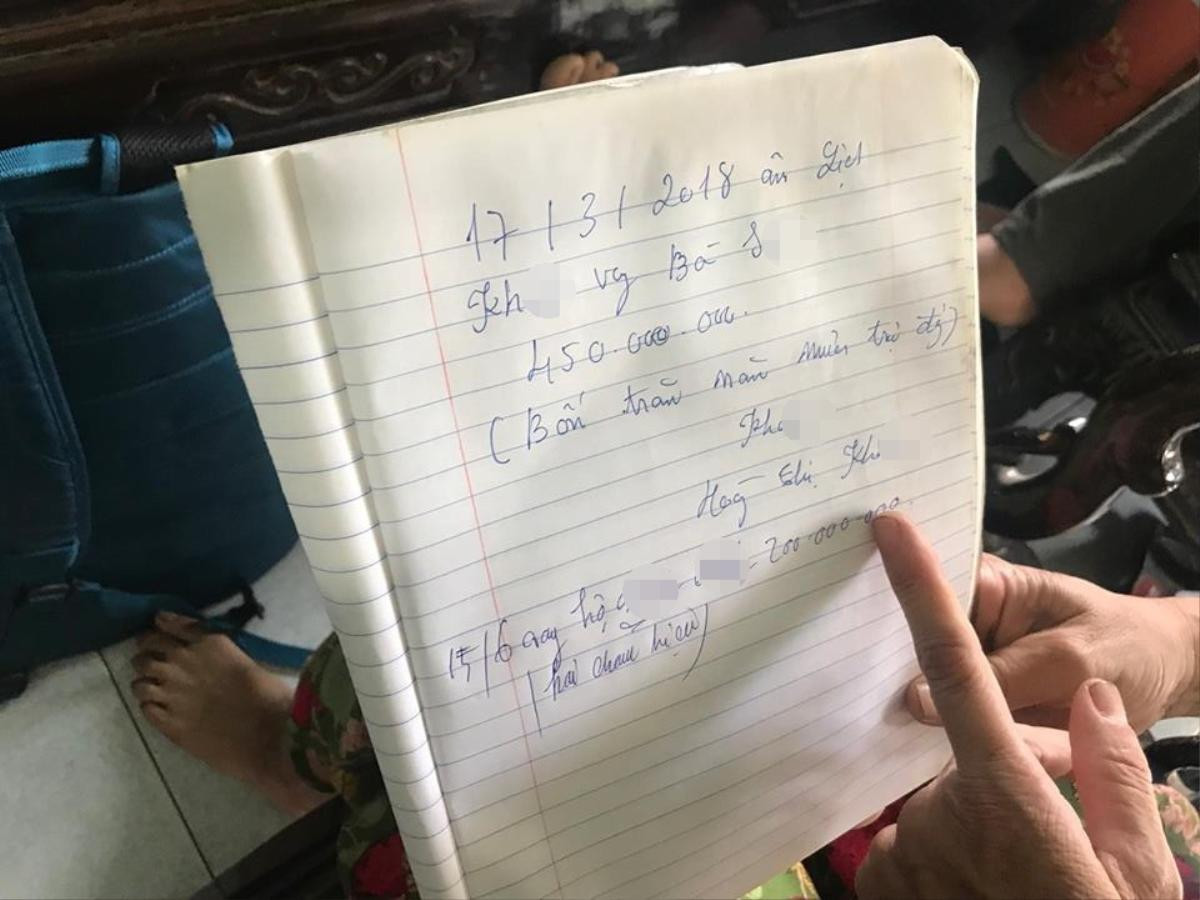 17/3/2018 âm Lịch
Kh vy Bà S
450.000.000.
(Bốn trăm năm mươi triệu đ)
Kh
Thị Kh
15/6 vay hộ 200.000.000.
(hai trăm triệu)